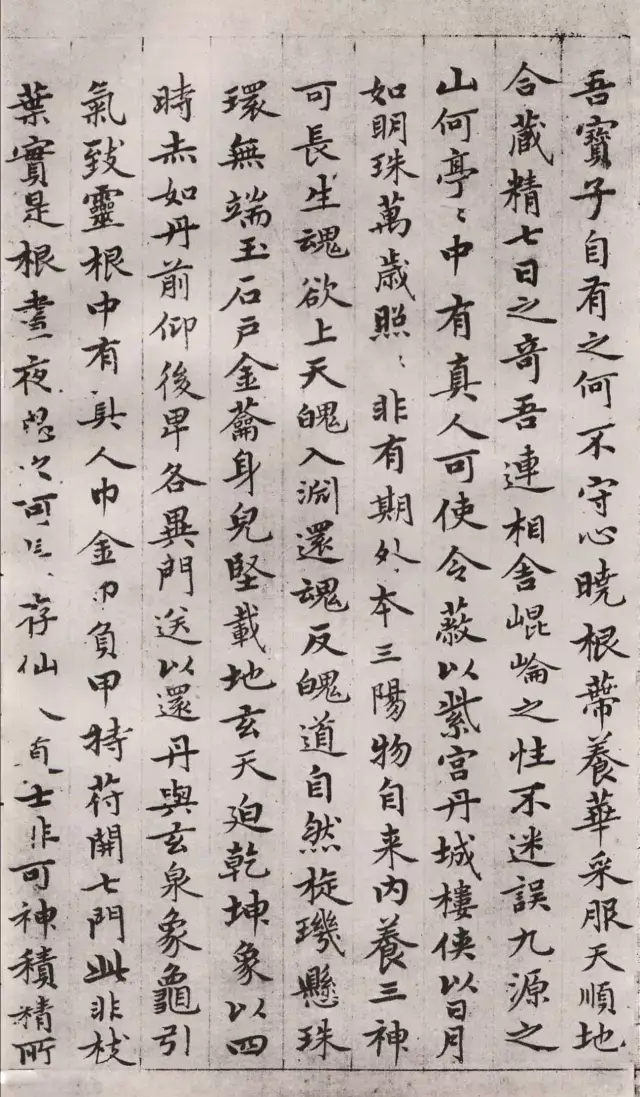 吾寶子自有之何不守心曉根蔕養華采服天順地
合藏精七日之奇吾連相舍崐崘之性不迷誤九源之
山何亭〻中有真人可使令蔽以紫宫丹城樓俠以日月
如明珠萬歳照〻非有期外本三陽物自来内養三神
可長生魂欲上天魄入淵還魂反魄道自然旋璣懸珠
環無端玉石戸金蘥身皃堅載地玄天迫乾坤象以四
時赤如丹前仰後卑各異門送以還丹與玄泉象龜引
氣致靈根中有真人巾金巾負甲持苻開七門此非枝
葉實是根晝夜思之可 存仙 士非可神積精所